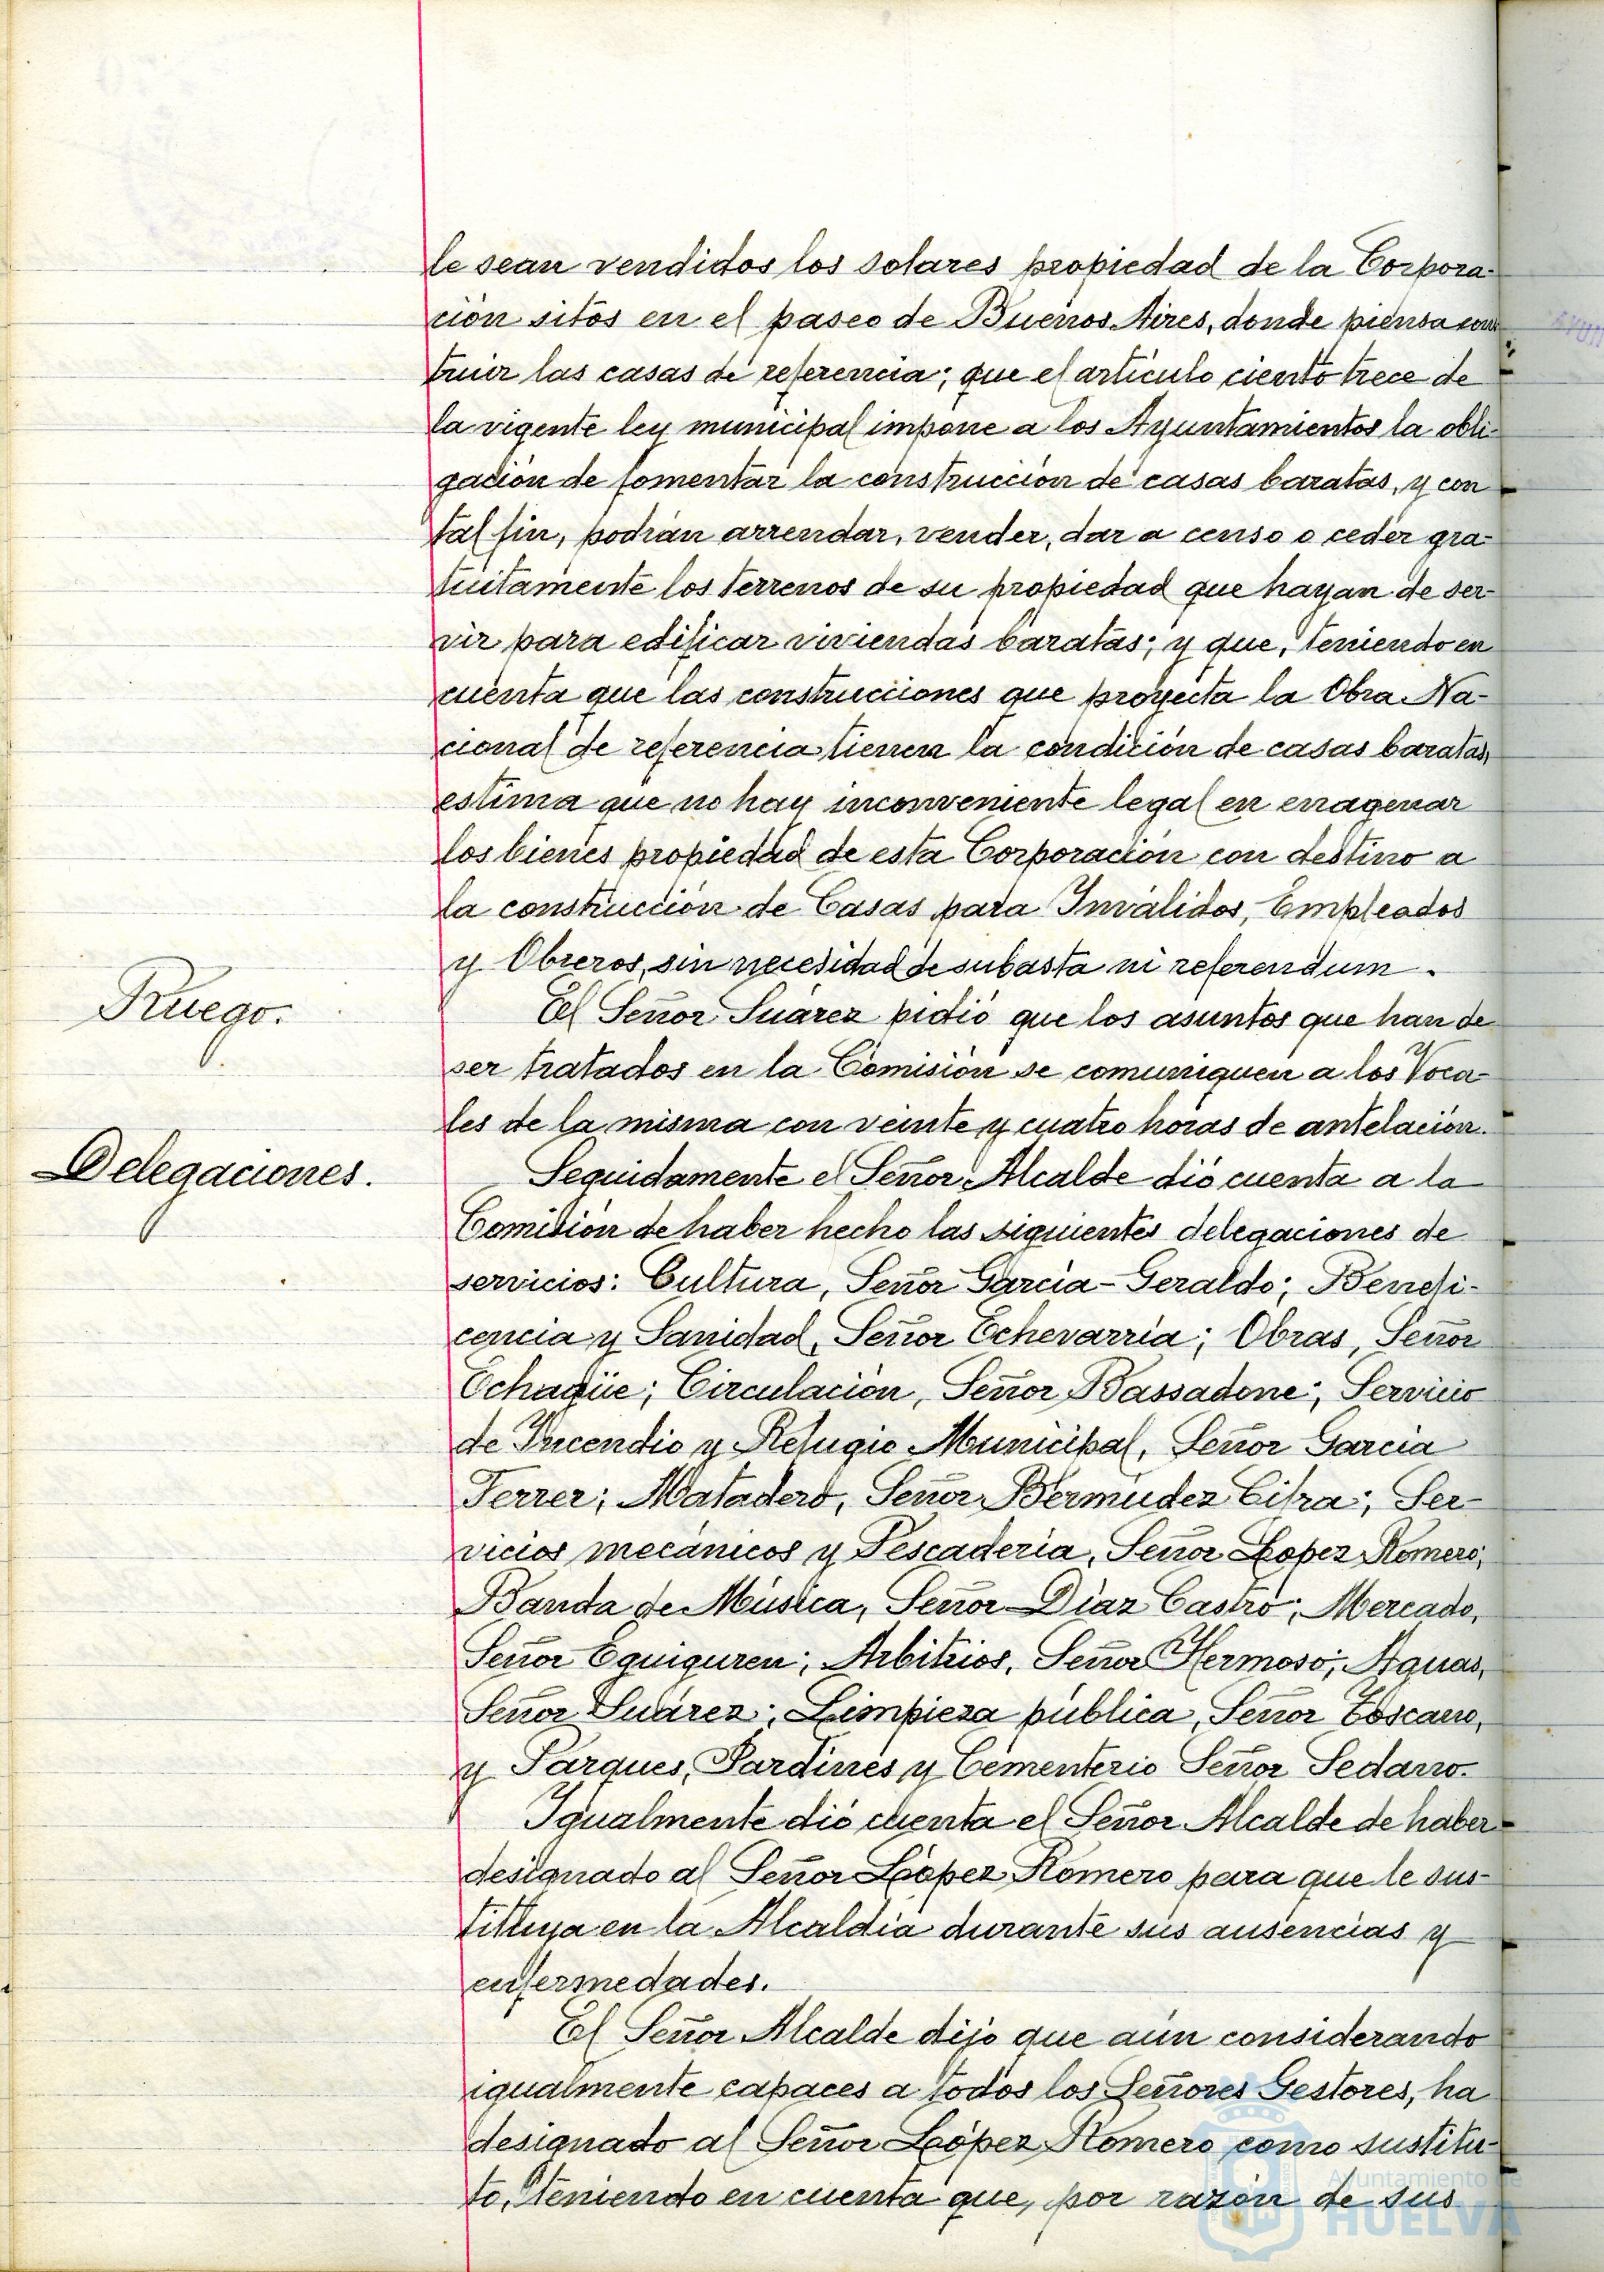 le sean vendidos los solares propiedad de la Corpora-
ción sitos en el paseo de Buenos Aires, donde piensa cons
truir las casas de referencia; que el artículo ciento trece de
la vigente ley municipal impone a los Ayuntamientos la obli-
gación de fomentar la construcción de casas baratas, y con
tal fin, podrán arrendar, vender, dar a censo o ceder gra-
tuitamente los terrenos de su propiedad que hayan de ser-
vir para edificar viviendas baratas; y que, teniendo en
cuenta que las construcciones que proyecta la Obra Na-
cional de referencia tienen la condición de casas baratas,
estima que no hay inconveniente legal en enagenar
los bienes propiedad de esta Corporación con destino a
la construcción de Casas para Inválidos, Empleados
y Obreros, sin necesidad de subasta ni referendum.
Ruego.
El Señor Suárez pidió que los asuntos que han de
ser tratados en la Comisión se comuniquen a los Voca-
les de la misma con veinte y cuatro horas de antelación.
Delegaciones.
Seguidamente el Señor Alcalde dió cuenta a la
Comisión de haber hecho las siguientes delegaciones de
servicios: Cultura, Señor García-Geraldo; Benefi-
cencia y Sanidad, Señor Echevarría; Obras, Señor
Echagüe; Circulación, Señor Bassadone; Servicio
de Incendio y Refugio Municipal, Señor García
Ferrer; Matadero, Señor Bermúdez Cifra; Ser-
vicios mecánicos y Pescadería, Señor López Romero;
Banda de Música, Señor Díaz Castro; Mercado,
Señor Eguiguren; Arbitrios, Señor Hermoso; Aguas,
Señor Suárez; Limpieza pública, Señor Toscano,
y Parques, Jardines y Cementerio Señor Sedano.
Igualmente dió cuenta el Señor Alcalde de haber
designado al Señor López Romero para que le sus-
tituya en la Alcaldía durante sus ausencias y
enfermedades.
El Señor Alcalde dijo que aún considerando
igualmente capaces a todos los Señores Gestores, ha
designado al Señor López Romero como sustitu-
to, teniendo en cuenta que, por razón de sus
Ayuntamiento de
HUELVA